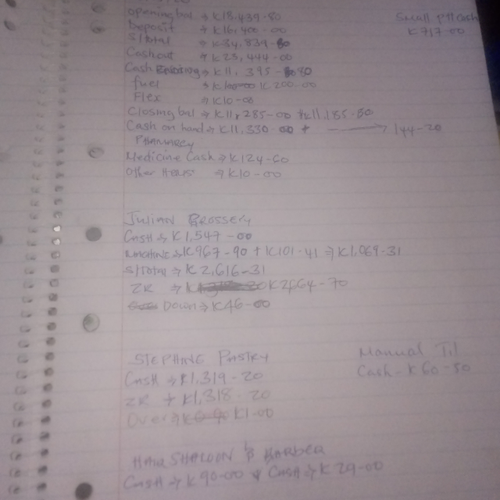 Opening bal → K18,439-80
Small Pft Cash
K717-00
Deposit → K16,400-00
S/Total → K34,839-80
Cashout → K23,444-00
Cash → K11,395-80
Fuel → K200-00
Flex → K10-00
Closing bal → K11,285-00 K11,185-80
Cash on hand → K11,330-00 + → 144-20
Pharmacy
Medicine Cash → K124-60
Other → K10-00
Julian Grossery
Cash → K1,547-00
→ K967-90 + K101-41 → K1,069-31
S/Total → K2,616-31
ZR → K2,664-70
Down → K46-00
Stephine Pastry
Manual Til
Cash → K1,319-20
Cash - K60-80
ZR → K1,318-20
Over → K1-00
Hair Shaloon & Barber
Cash → K90-00 Cash → K29-00